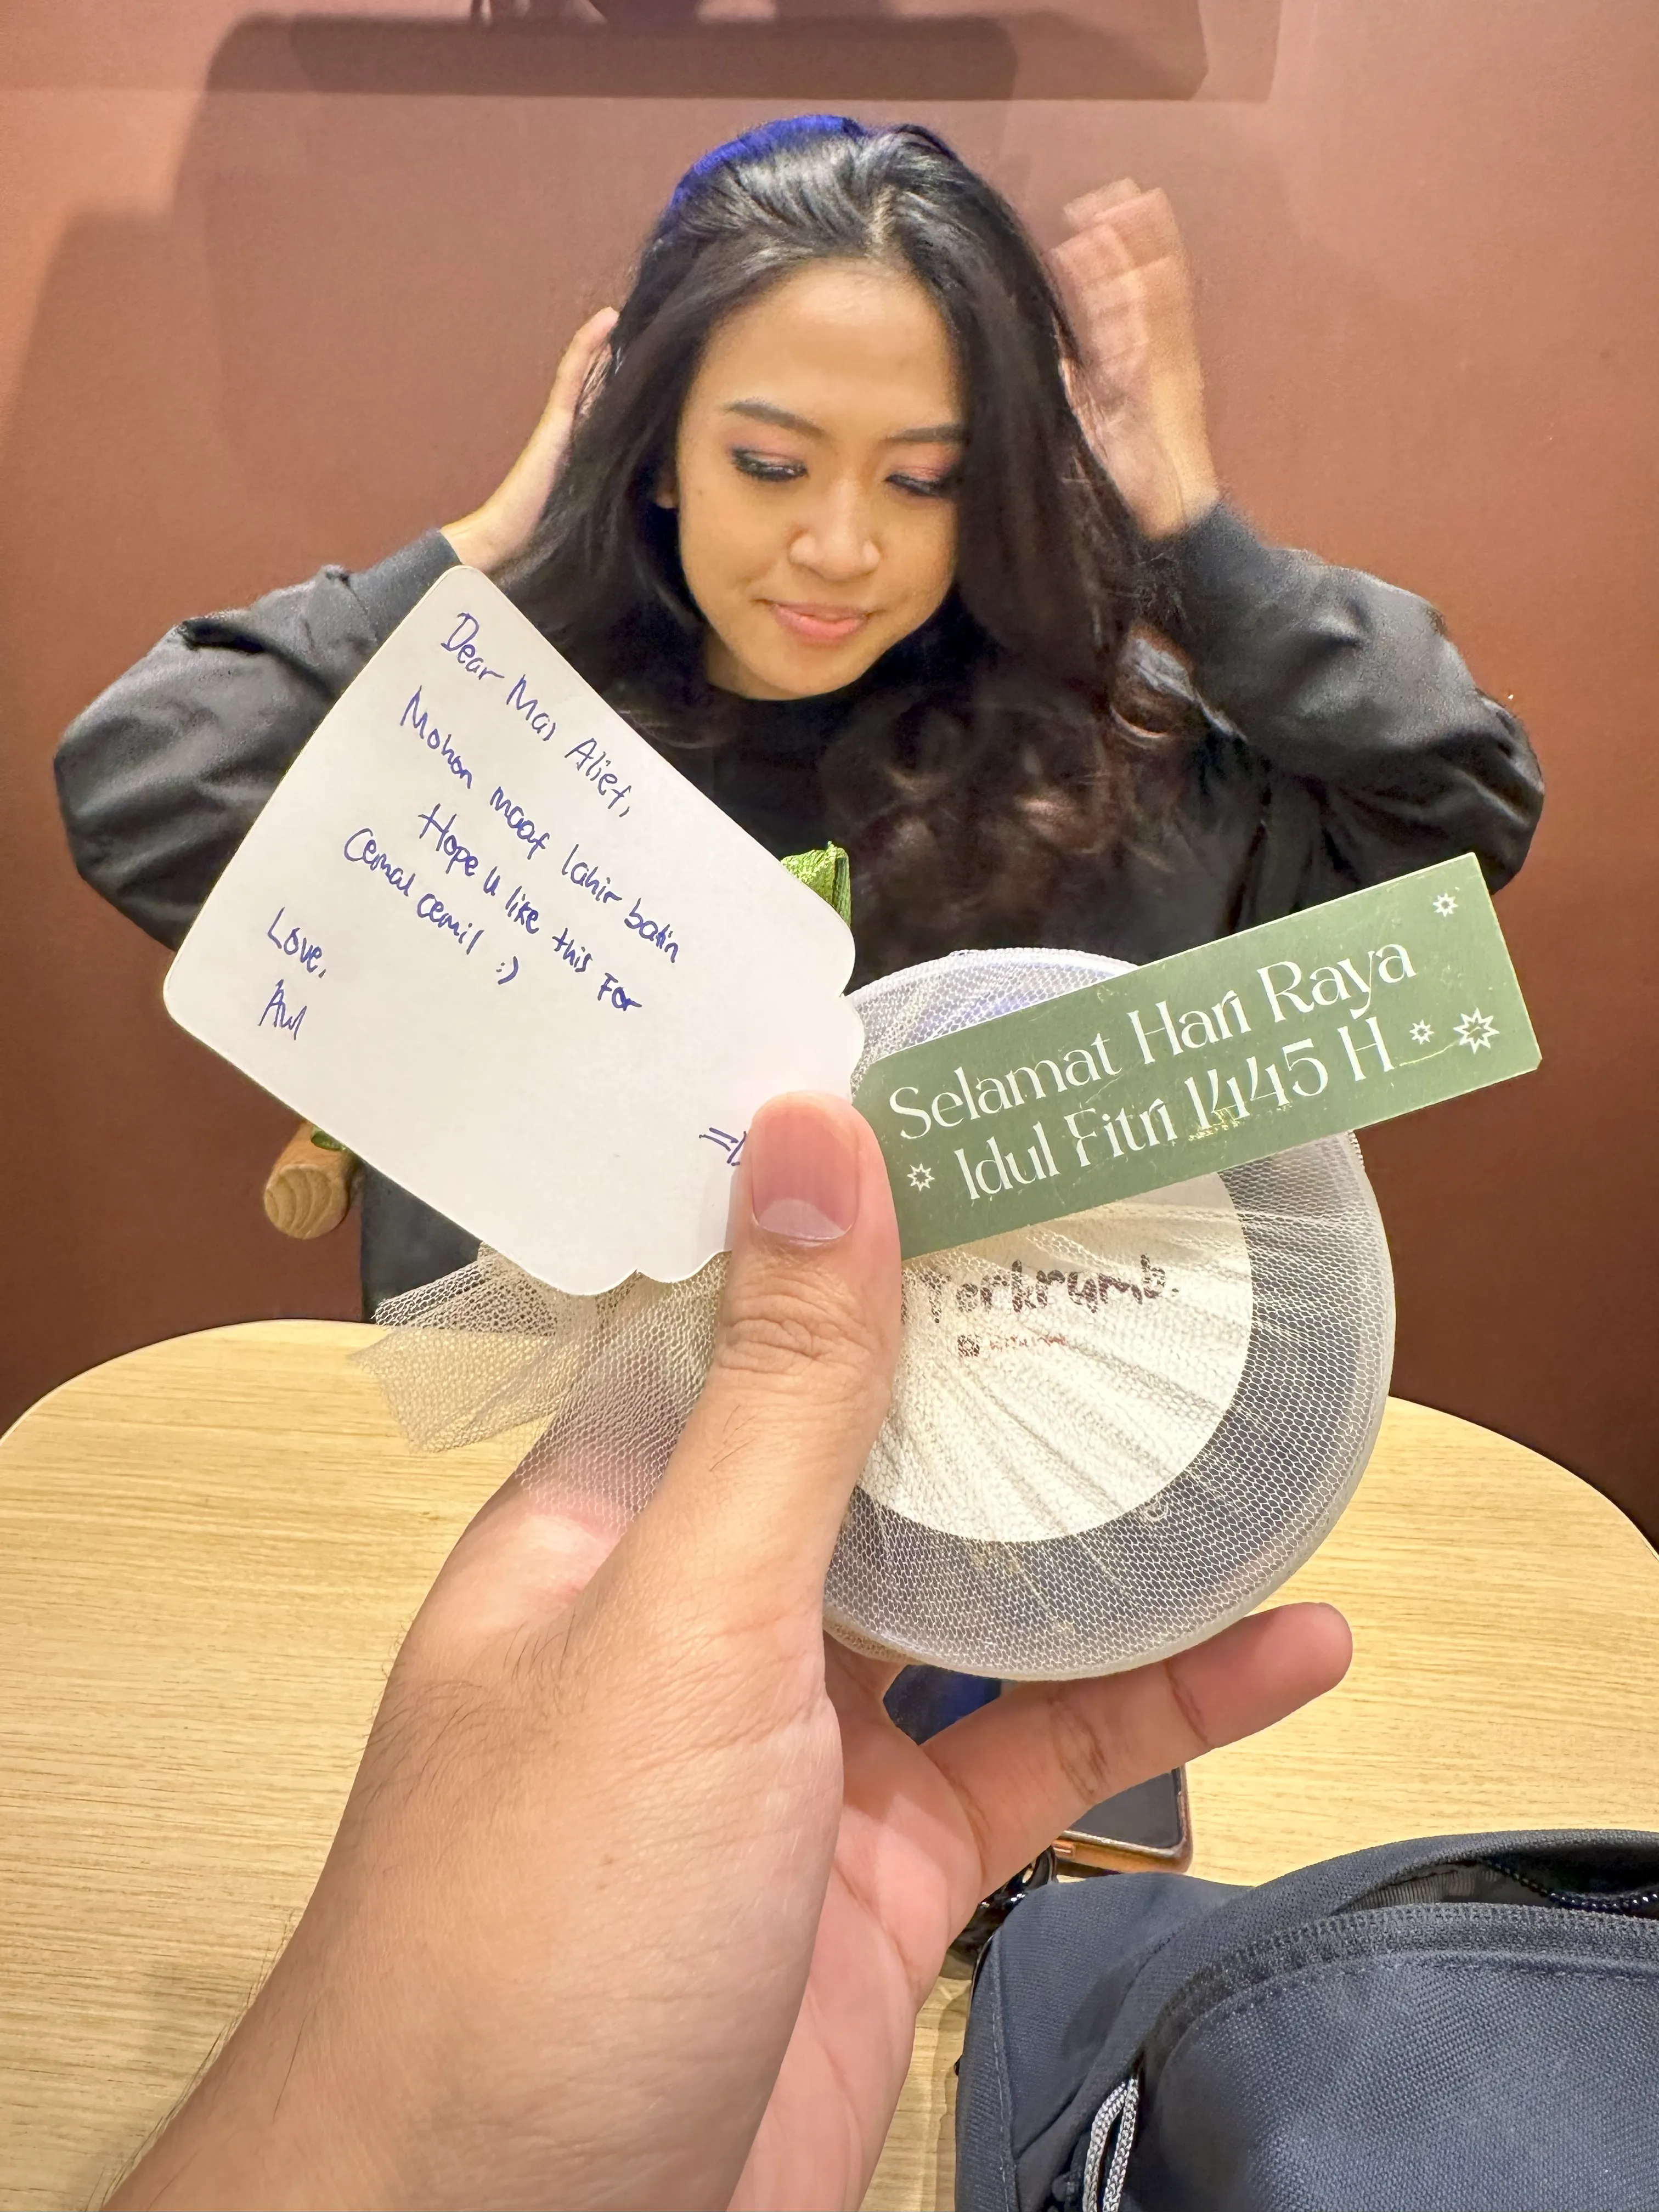 Dear Mas Alief,
Mohon maaf lahir batin
Hope u like this For
Cemal cemil :)
Love,
Awl
Selamat Hari Raya
Idul Fitri 1445 H